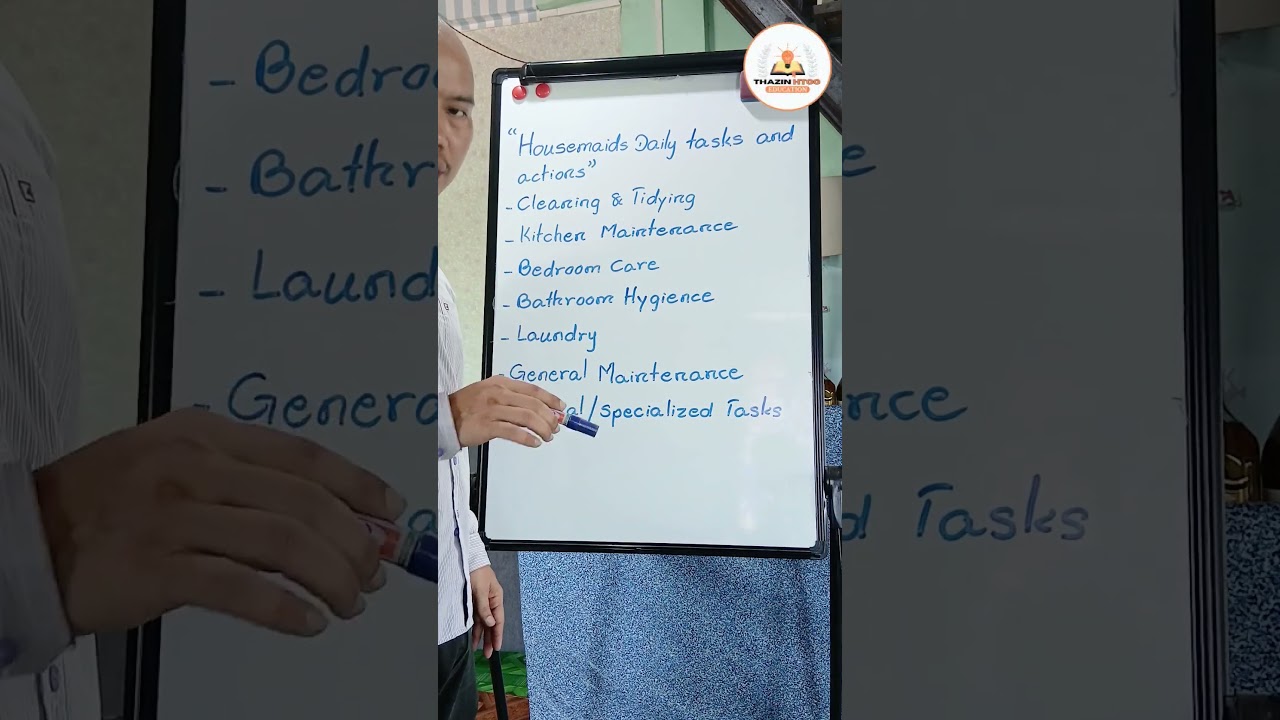 THAZIN HTOO
EDUCATION
"Housemaids Daily tasks and
actions"
- Cleaning & Tidying
- Kitchen Maintenance
- Bedroom Care
- Bathroom Hygience
- Laundry
- General Maintenance
/specialized Tasks